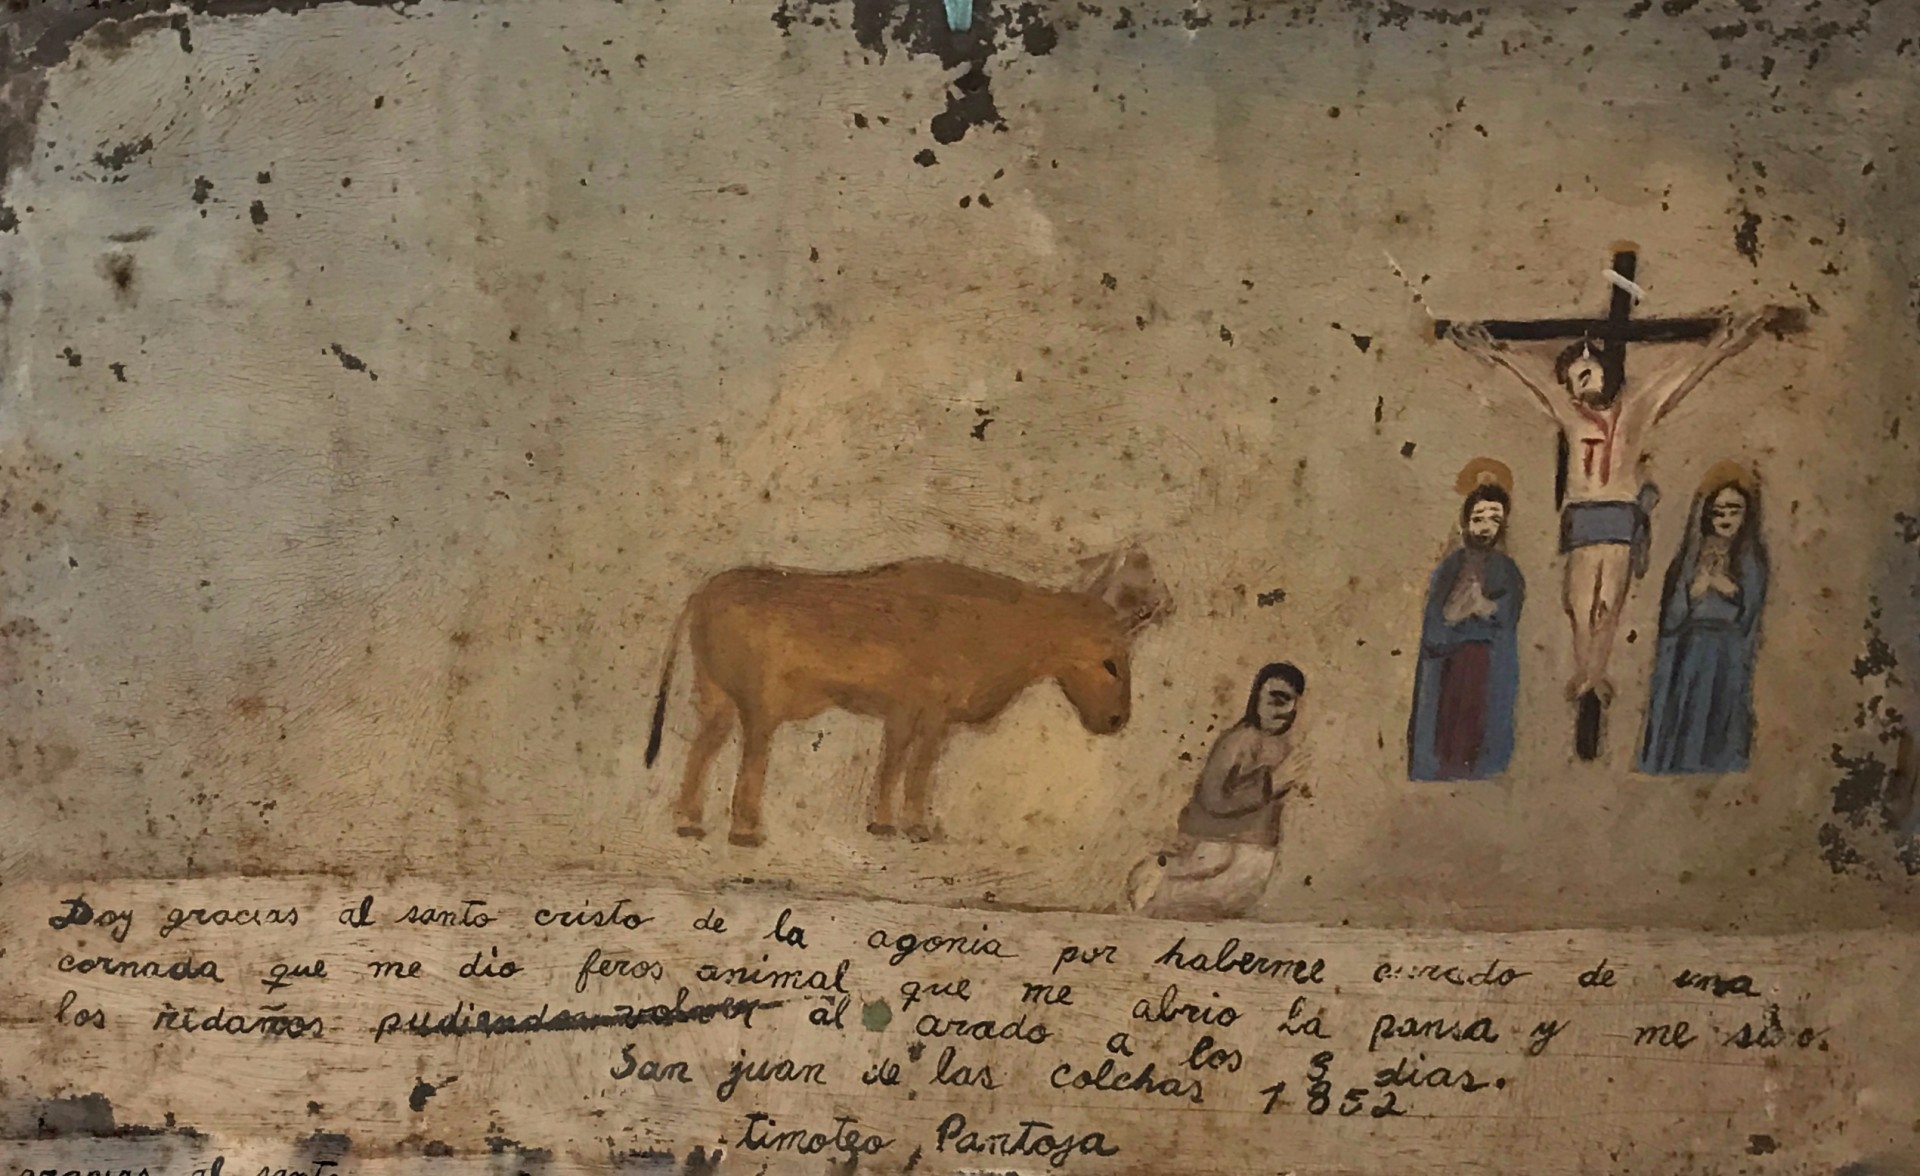 Doy gracias al santo cristo de la agonia por haberme curado de una
cornada que me dio feros animal que me abrio la pansa y me saco.
los ridaños pudiendo volver al arado a los 8 dias.
San juan de las colchas 1852
timoteo Pantoja
gracias al santo